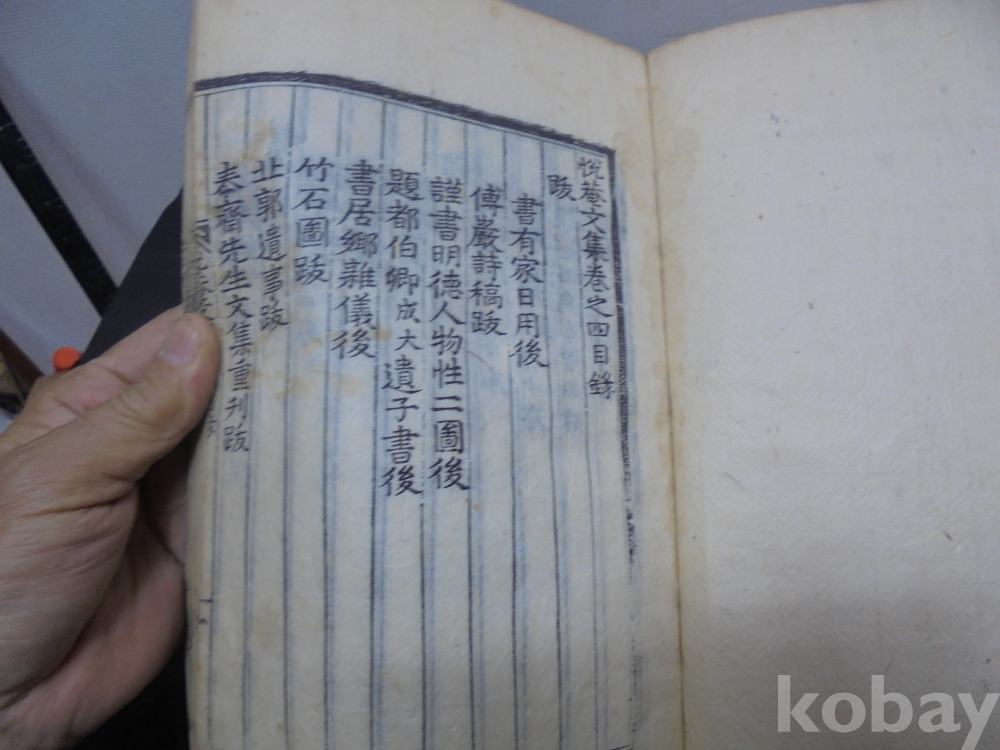 悅菴文集卷之四目錄
跋
書有家日用後
傅巖詩稿跋
謹書明德人物性二圖後
題都伯卿成大遺子書後
書居鄉雜儀後
竹石圖跋
北郭遺事跋
泰齋先生文集重刊跋
kobay